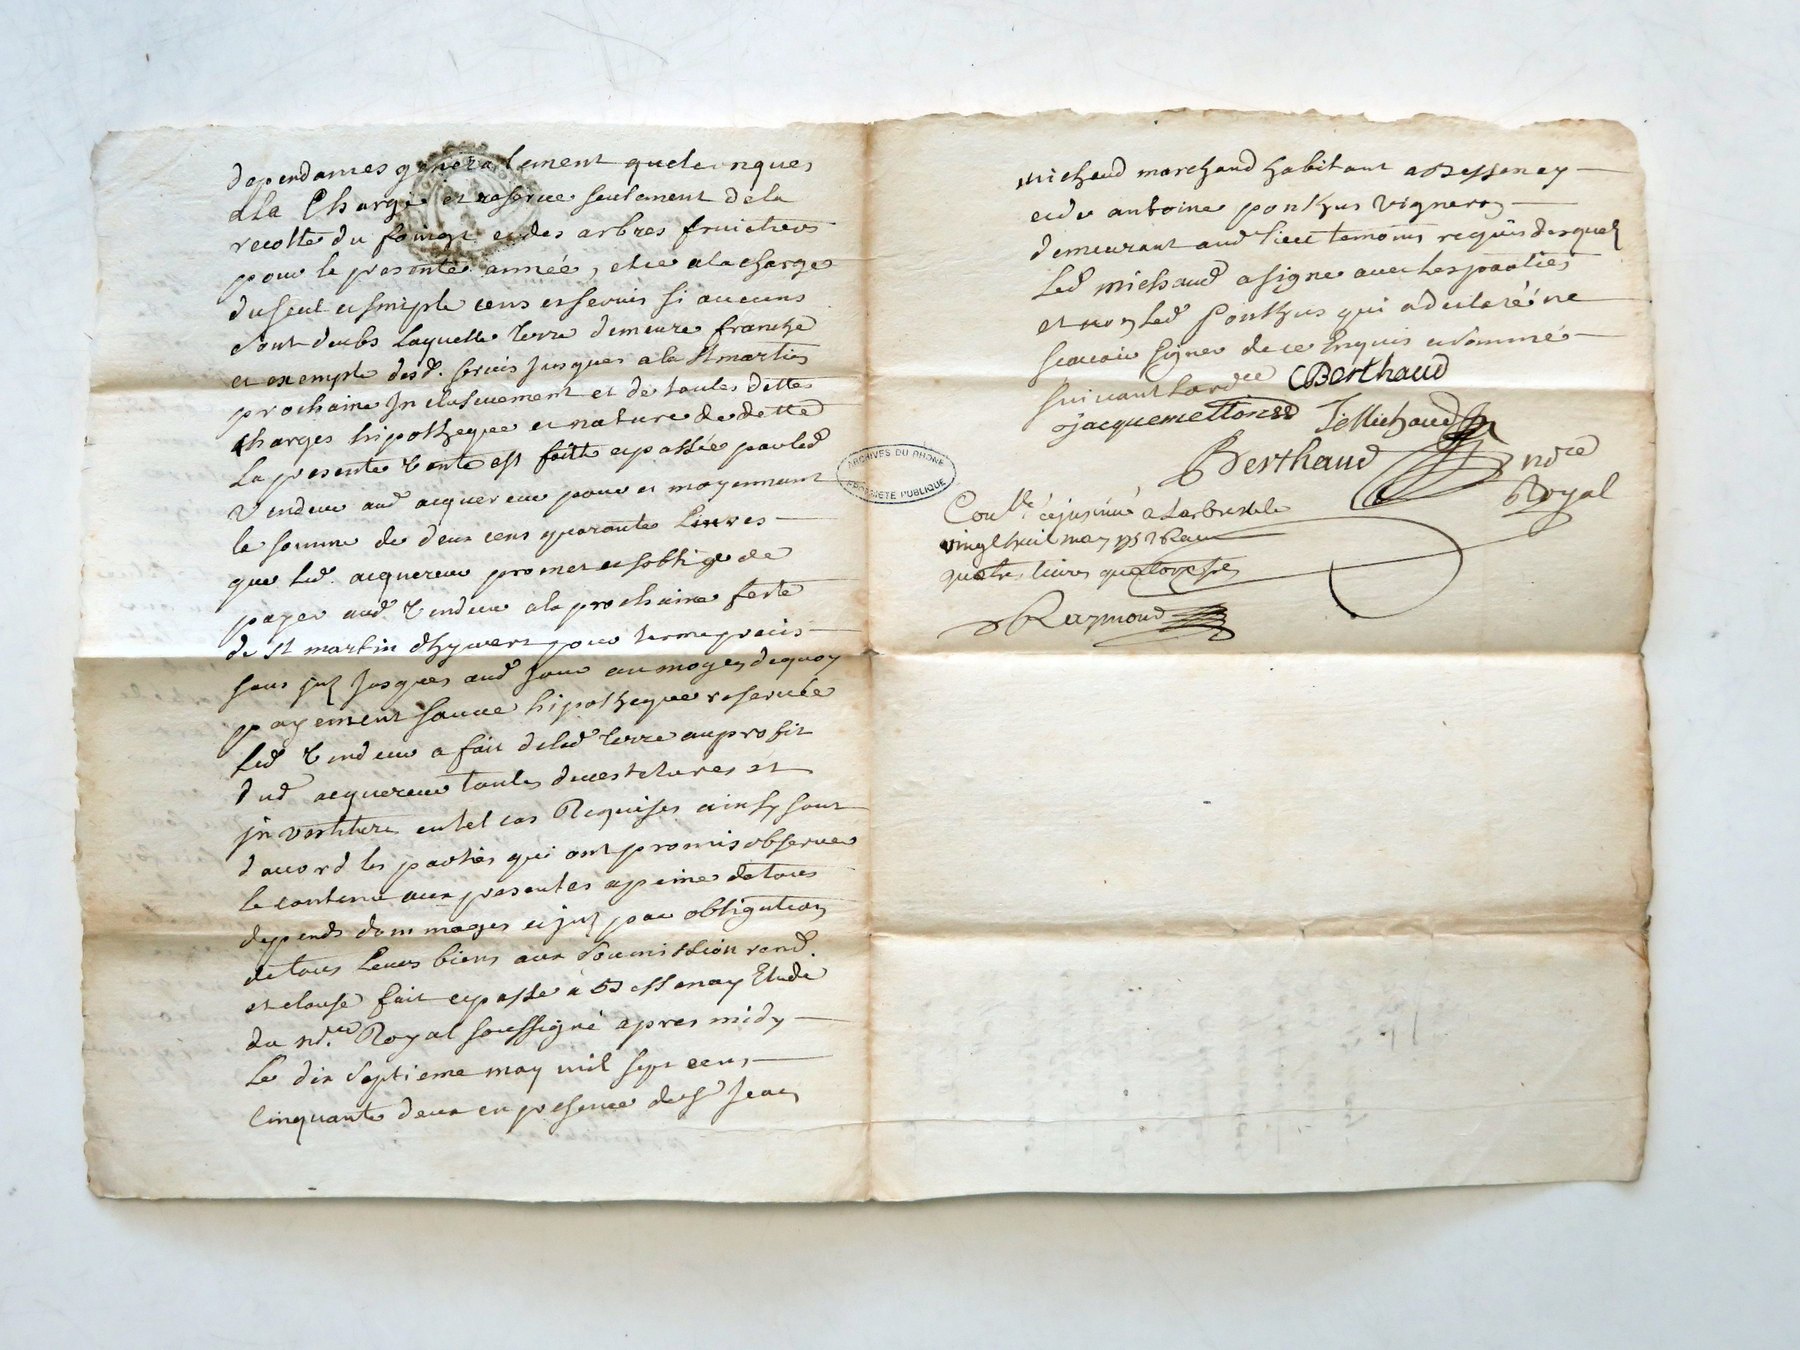 dependances generalement quelconques
a la Charge et reserve seulement de la
recolte du foin et des arbres fruictiers
pour la presente année, et ce a la charge
du seul et simple cens et servis si aucuns
sont deubs laquelle terre demeure franche
et exempte desd. servis jusques a la St martin
prochaine jnclusivement et de toutes dettes
charges hipotheque et nature de dette
La presente vente est faitte et passée par led
vendeur aud acquereur pour et moyennant
la somme de deux cens quarante Livres
que led. acquereur promet et soblige de
payer aud. vendeur a la prochaine feste
de St martin dhyvert pour terme precis
sans jnt jusques aud jour au moyen de quoy
payement sauve hipotheque reservée
led vendeur a fait de lad terre au profit
dud acquereur toutes devestitures et
jnvestiture en tel cas Requises ainsy sont
daccord les parties qui ont promis observer
le contenu aux presentes a peine de tous
depends dommages et jnt par obligation
de tous leurs biens aux soumission rend.
et clause fait et passé a Bessenay Etude
du nre Royal soussigné apres midy
Le dix septieme may mil sept cens
Cinquante deux en presence de sr Jean
michaud marchand habitant a Bessenay
et de antoine ponthus vigneron
demeurant aud lieu temoins requis desquels
led michaud a signe avec les parties
et non led ponthus qui a declaré ne
scavoir signer de ce Enquis et sommé
suivant lordce Berthaud
jacquemetton J Michaud
Berthaud nore
Royal
ARCHIVES DU RHONE
PROPRIETE PUBLIQUE
Conllé et jnsinué a Larbresle le
vingt huit may 1752 Recu
quatre livres quatorze sols
Raymond